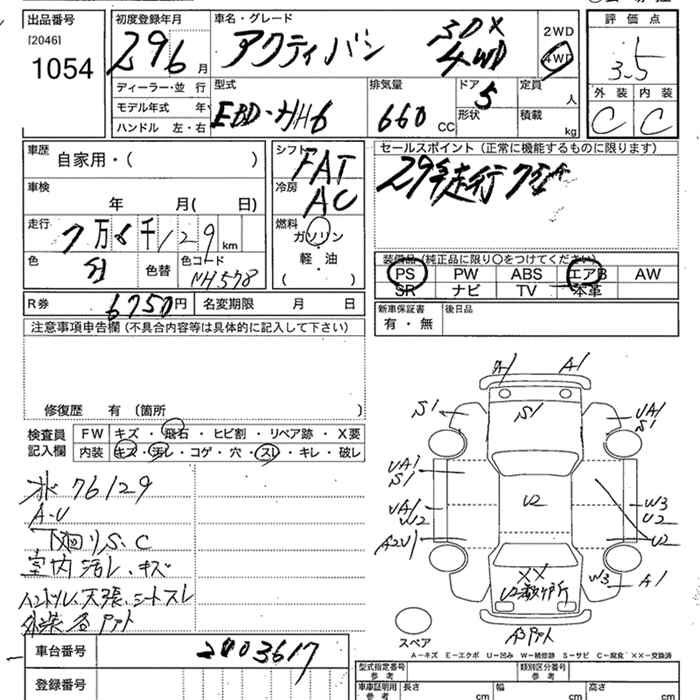 出品番号
[2046]
1054
初度登録年月
29 6 月
車名・グレード
アクティバン SDX
4WD
2WD
4WD
評価点
3.5
外装 内装
C C
ディーラー・並行
モデル年式 年
ハンドル 左・右
型式
EBD-HH6
排気量
660 CC
ドア 5
形状
定員 人
積載 kg
車歴
自家用・( )
車検
年 月( 日)
走行
7万6千129 km
色
白
色替
色コード
NH578
シフト
FAT
冷房
AC
燃料
ガソリン
・
軽・油
( )
セールスポイント(正常に機能するものに限ります)
装備品(純正品に限り〇をつけてください)
PS PW ABS エアB AW
SR ナビ TV 本革
R券
6750円
名変期限 月 日
新車保証書
有・無
後日品
注意事項申告欄(不具合内容等は具体的に記入して下さい)
修復歴 有(箇所 )
検査員
記入欄
FW キズ・飛石・ヒビ割・リペア跡・X要
内装 キズ・汚レ・コゲ・穴・スレ・キレ・破レ
76129
A-U
下廻りS.C
室内汚レ.キズ
ハンドル.天張.シートスレ
A1 A1
S1 S1 UA1
S1
UA1
S1
U2
UA1
W2
W3
U2
A2U1
U2
XX
W3 A1
スペア
A-キズ E-エクボ U-凹み W-補修跡 S-サビ C-腐食 XX-交換済
車台番号
2003617
登録番号
型式指定番号
参考
類別区分番号
参考
車庫証明用
参考
長さ cm
幅 cm
高さ cm